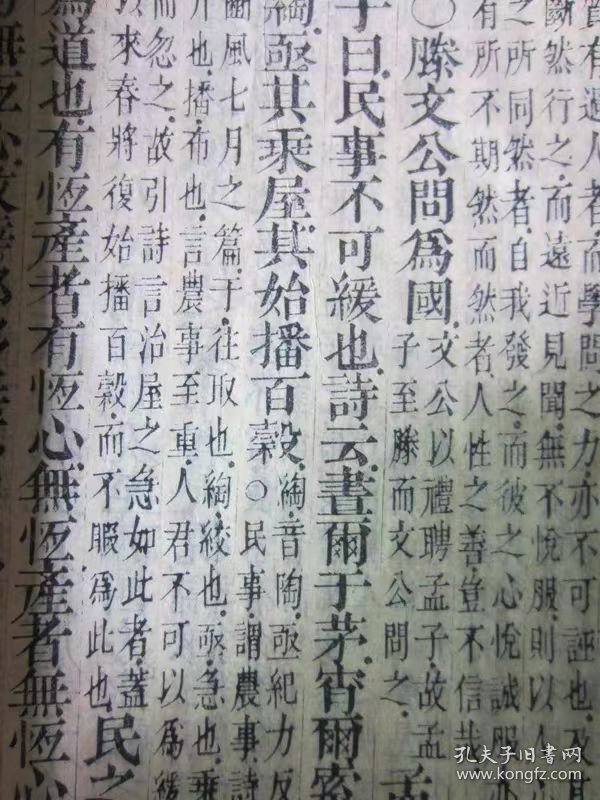 質有過人者,而學問之力,亦不可誣也,及其
斷然行之,而遠近見聞,無不悅服,則以人心
之所同然者,自我發之,而彼之心悅誠服,亦
有所不期然而然者,人性之善,豈不信哉
○滕文公問爲國
文公以禮聘孟子,故孟
子至滕而文公問之.
孟
子曰民事不可緩也詩云晝爾于茅宵爾索
綯亟其乘屋其始播百穀
綯,音陶,亟紀力反
○民事,謂農事,詩
豳風七月之篇,于,往取也,綯,絞也,亟,急也,乘
升也,播,布也,言農事至重,人君不可以爲緩
而忽之,故引詩言治屋之急如此者,蓋
以來春將復始播百穀,而不暇爲此也
民之
爲道也有恆產者有恆心無恆產者無恆心
無恆心
孔夫子旧书网
www.kongfz.com